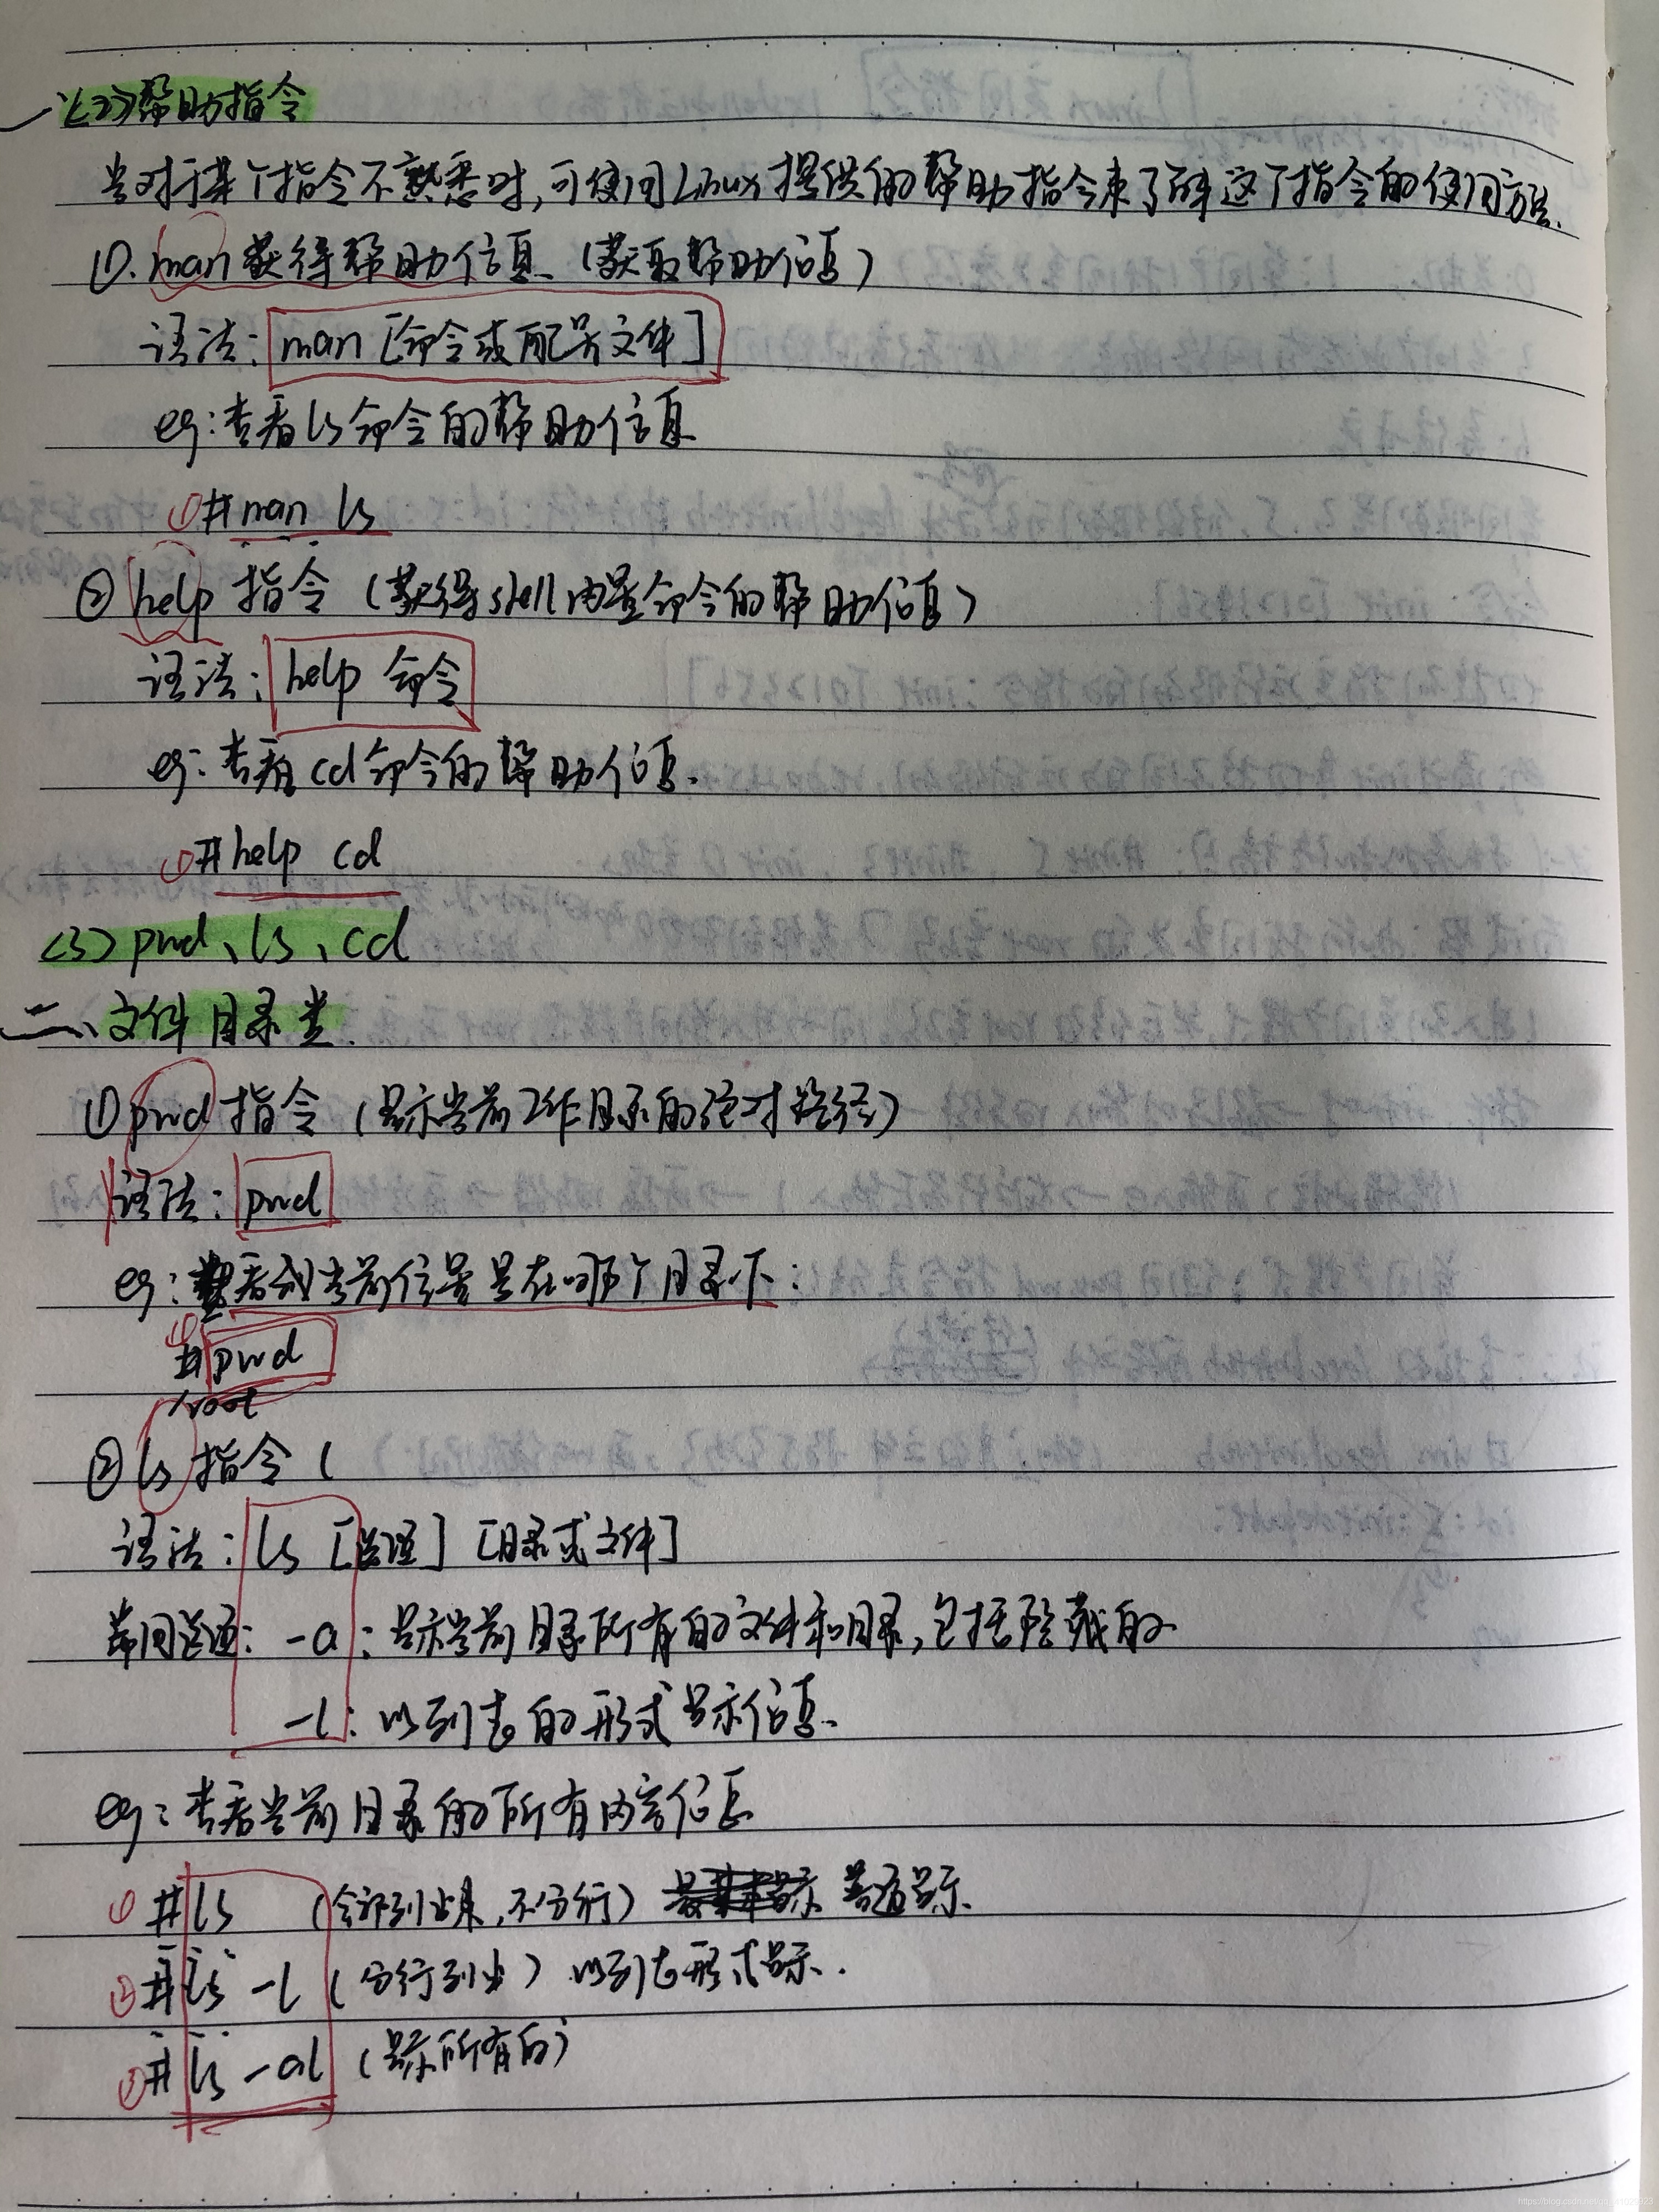 一、(2)帮助指令
当对于某个指令不熟悉时,可使用Linux提供的帮助指令来了解这个指令的使用方法.
①.man获得帮助信息.(获取帮助信息)
语法:man [命令或配置文件]
eg:查看ls命令的帮助信息
①#man ls
②help 指令 (获得shell内置命令的帮助信息)
语法:help 命令
eg:查看cd命令的帮助信息.
①#help cd
(3)pwd、ls、cd
二、文件目录类.
①pwd指令 (显示当前工作目录的绝对路径)
语法:pwd
eg:看到当前位置是在哪个目录下:
①#pwd
/root
②ls指令 (
语法:ls [选项] [目录或文件]
常用选项: -a:显示当前目录所有的文件和目录,包括隐藏的
-l:以列表的形式显示信息.
eg:查看当前目录的所有内容信息
①#ls (全部列出来,不分行) 普通显示.
②#ls -l (分行列出) 以列表形式显示.
③#ls -al (显示所有的)